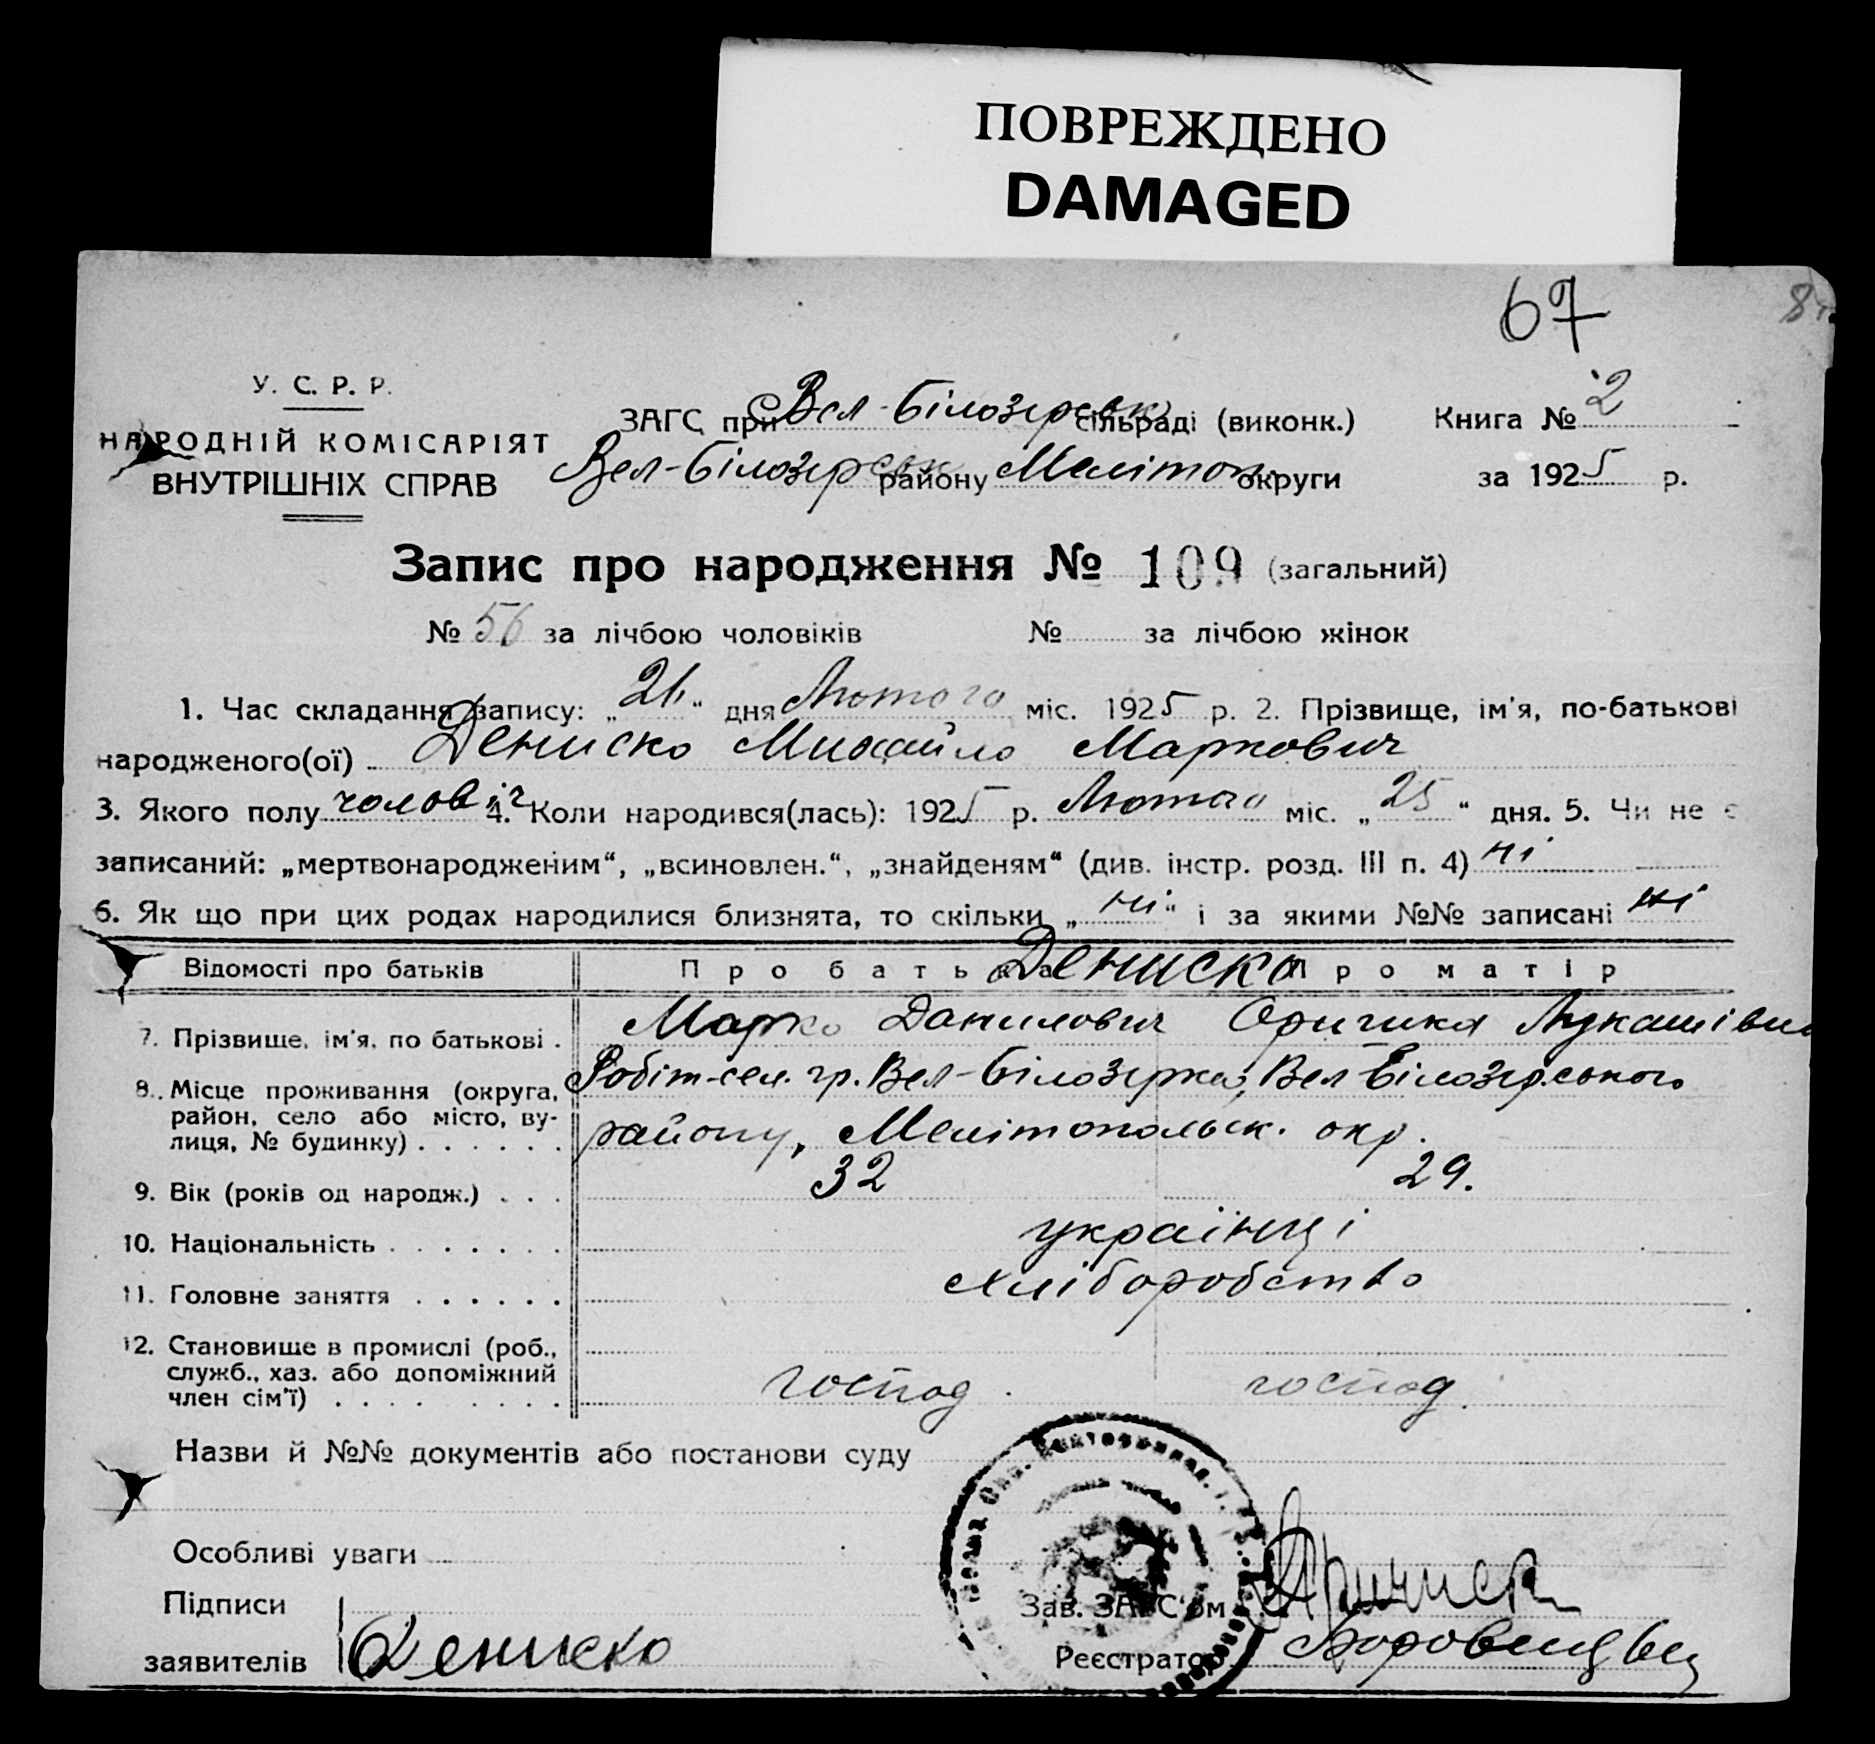 ПОВРЕЖДЕНО
DAMAGED
67
У. С. Р. Р.
НАРОДНІЙ КОМІСАРІЯТ
ВНУТРІШНІХ СПРАВ
ЗАГС при Вел-Білозерськ сільраді (виконк.) Книга № 2
Вел-Білозерськ району Мелітоп. округи за 1925 р.
Запис про народження № 109 (загальний)
№ 56 за лічбою чоловіків № за лічбою жінок
1. Час складання запису: „26“ дня Лютого міс. 1925 р. 2. Прізвище, ім'я, по-батькові
народженого(ої) Дениско Михайло Маркович
3. Якого полу чоловіч 4. Коли народився(лась): 1925 р. Лютого міс. „25“ дня. 5. Чи не є
записаний: „мертвонародженим“, „всиновлен.“, „знайденям“ (див. інстр. розд. III п. 4) ні
6. Як що при цих родах народилися близнята, то скільки „ні“ і за якими №№ записані ні
Відомості про батьків Про батька Дениско Про матір
7. Прізвище, ім'я, по батькові . Марко Данилович Оришка Лукашівна
8. Місце проживання (округа, Робіт-сел. гр. Вел-Білозерка, Вел Білозерського
район, село або місто, ву-
лиця, № будинку) . . . . . . району, Мелітопольськ. окр.
9. Вік (років од народж.) . . . 32 29.
10. Національність . . . . . . . українці
11. Головне заняття . . . . . . хліборобство
12. Становище в промислі (роб.,
служб., хаз. або допоміжний
член сім'ї) . . . . . . . . . господ. господ.
Назви й №№ документів або постанови суду
Особливі уваги
Підписи
Зав. ЗАГС'ом
заявителів Дениско
Реєстратор